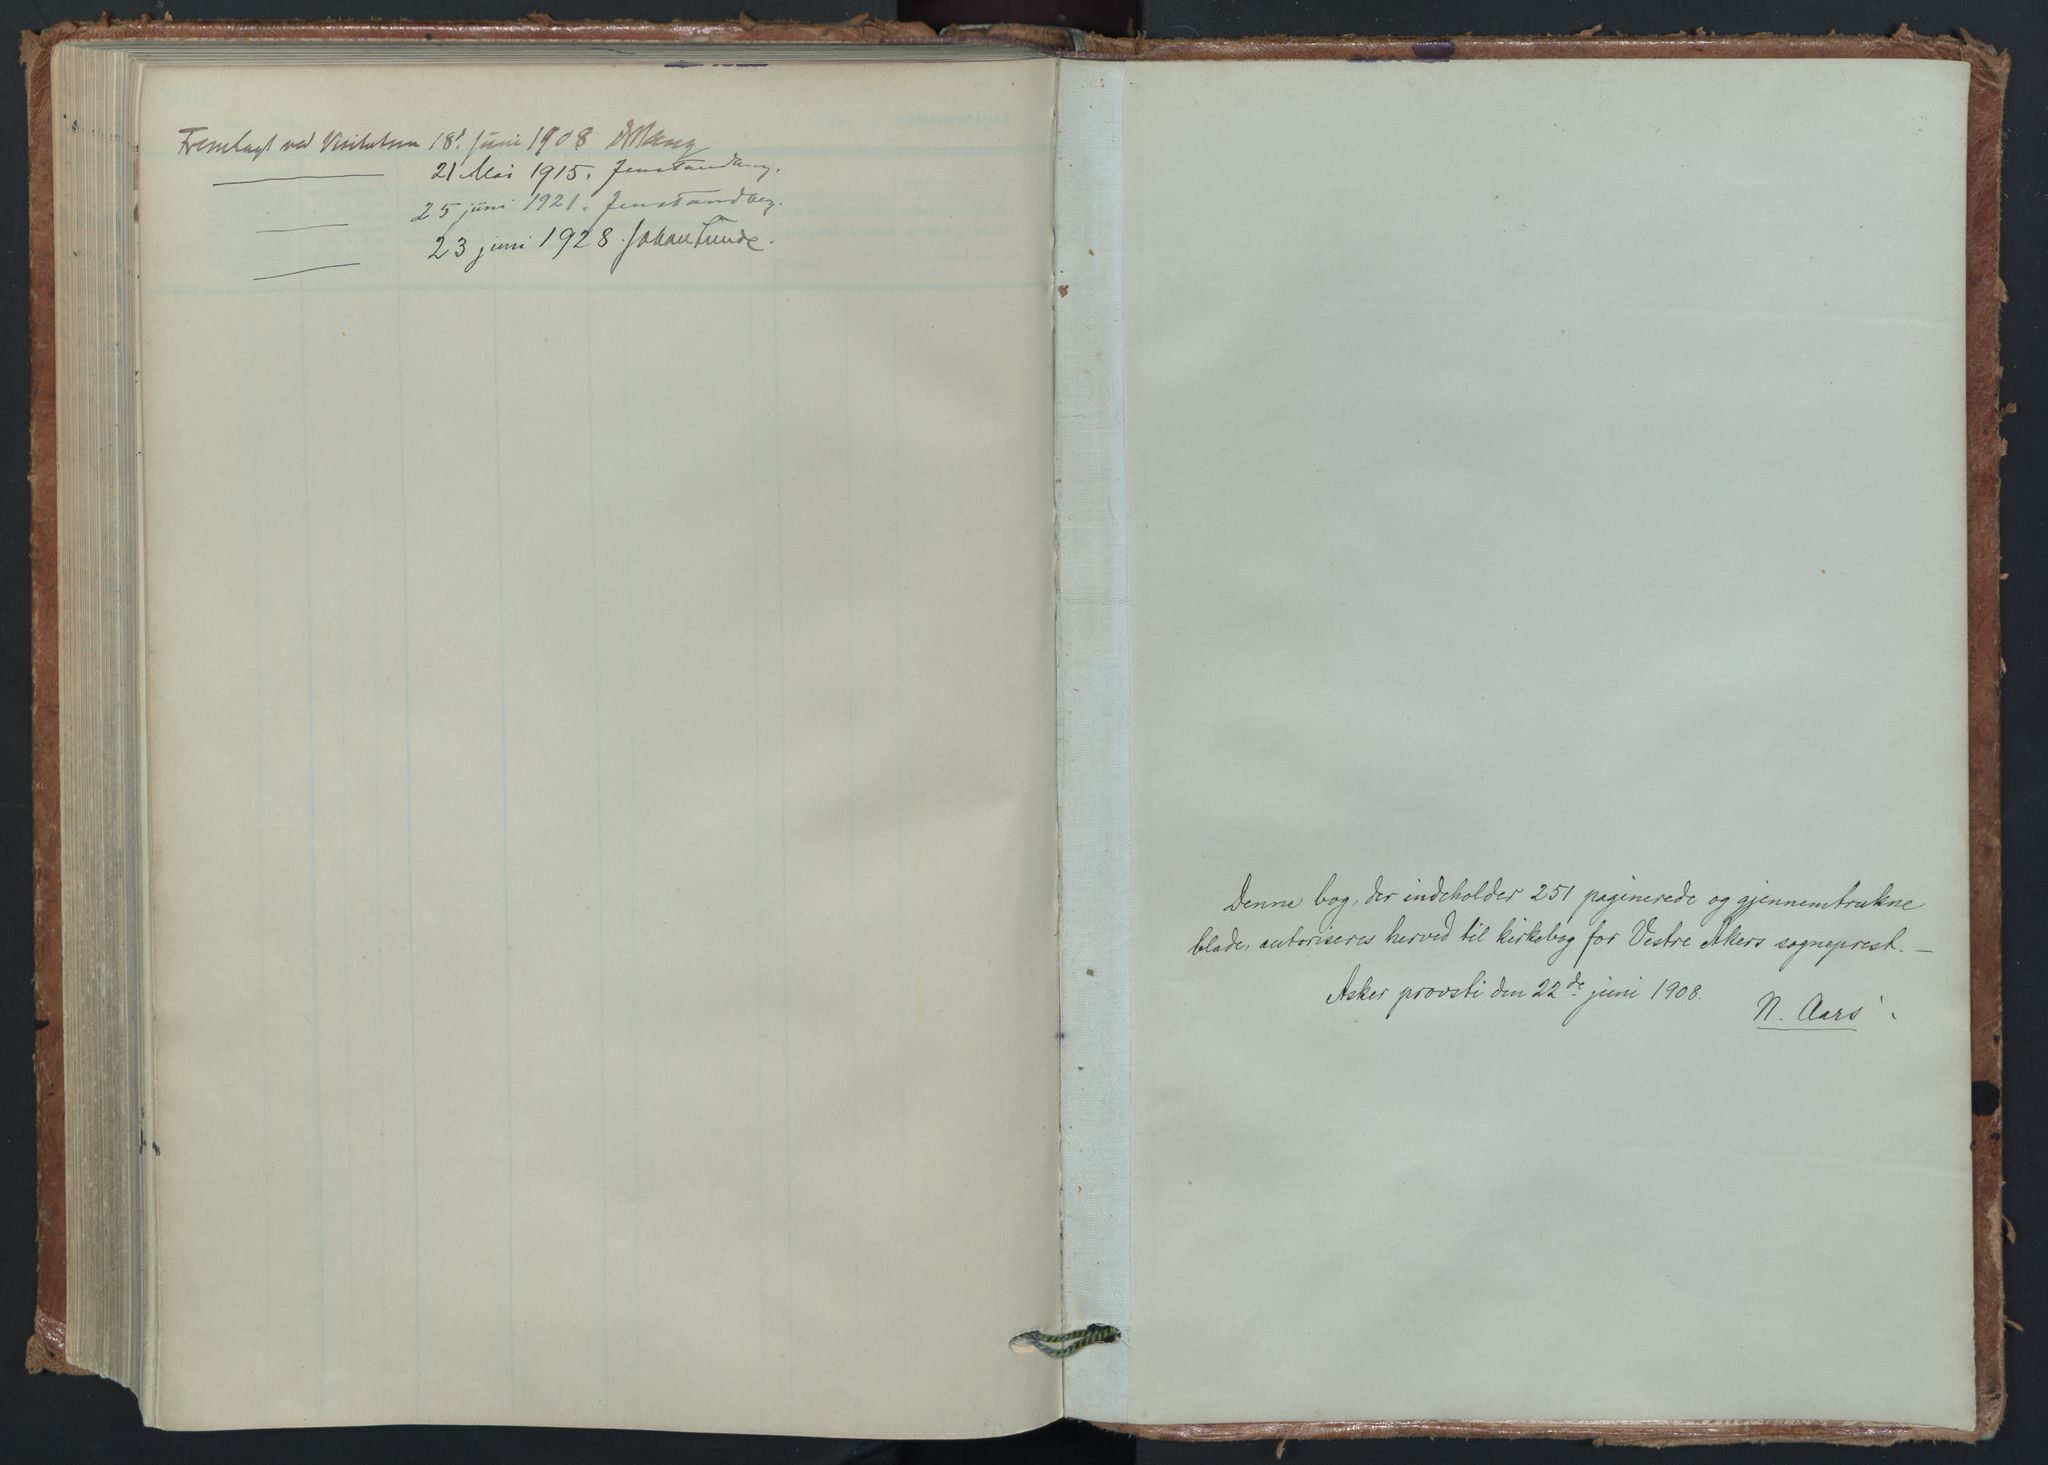 Fremlagt ved Visitatsen 18d Juni 1908 A Bang
21 Mai 1915. Jens Tandberg.
25 juni 1921. Jens Tandberg.
23 juni 1928. Johan Lunde.
Denne bog, der indeholder 251 paginerede og gjennemtrukne
blade, autoriseres herved til kirkebog for Vestre Akers sogneprest. —
Asker provsti den 22de juni 1908.
N. Aars